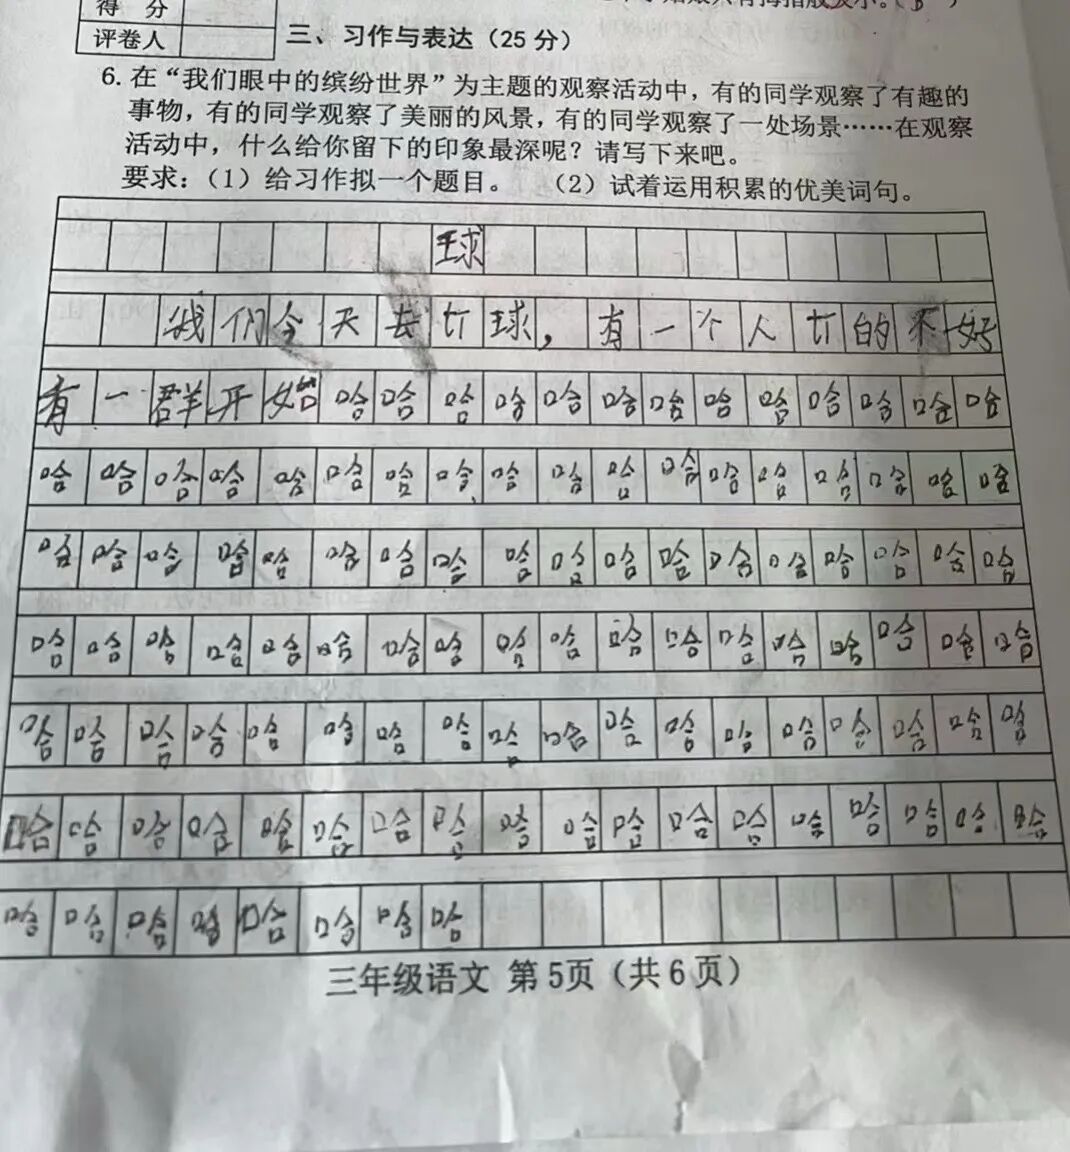 得 分
只有拇指般大小。( B )
评卷人
三、习作与表达（25 分）
6. 在“我们眼中的缤纷世界”为主题的观察活动中，有的同学观察了有趣的
事物，有的同学观察了美丽的风景，有的同学观察了一处场景……在观察
活动中，什么给你留下的印象最深呢？请写下来吧。
要求：（1）给习作拟一个题目。 （2）试着运用积累的优美词句。
球
我们今天去打球，有一个人打的不好
有一群开始哈哈哈哈哈哈哈哈哈哈哈哈哈
哈哈哈哈哈哈哈哈哈哈哈哈哈哈哈哈哈哈
哈哈哈哈哈哈哈哈哈哈哈哈哈哈哈哈哈哈
哈哈哈哈哈哈哈哈哈哈哈哈哈哈哈哈哈哈
哈哈哈哈哈哈哈哈哈哈哈哈哈哈哈哈哈哈
哈哈哈哈哈哈哈哈哈哈哈哈哈哈哈哈哈哈
哈哈哈哈哈哈哈哈
三年级语文 第 5页（共 6 页）